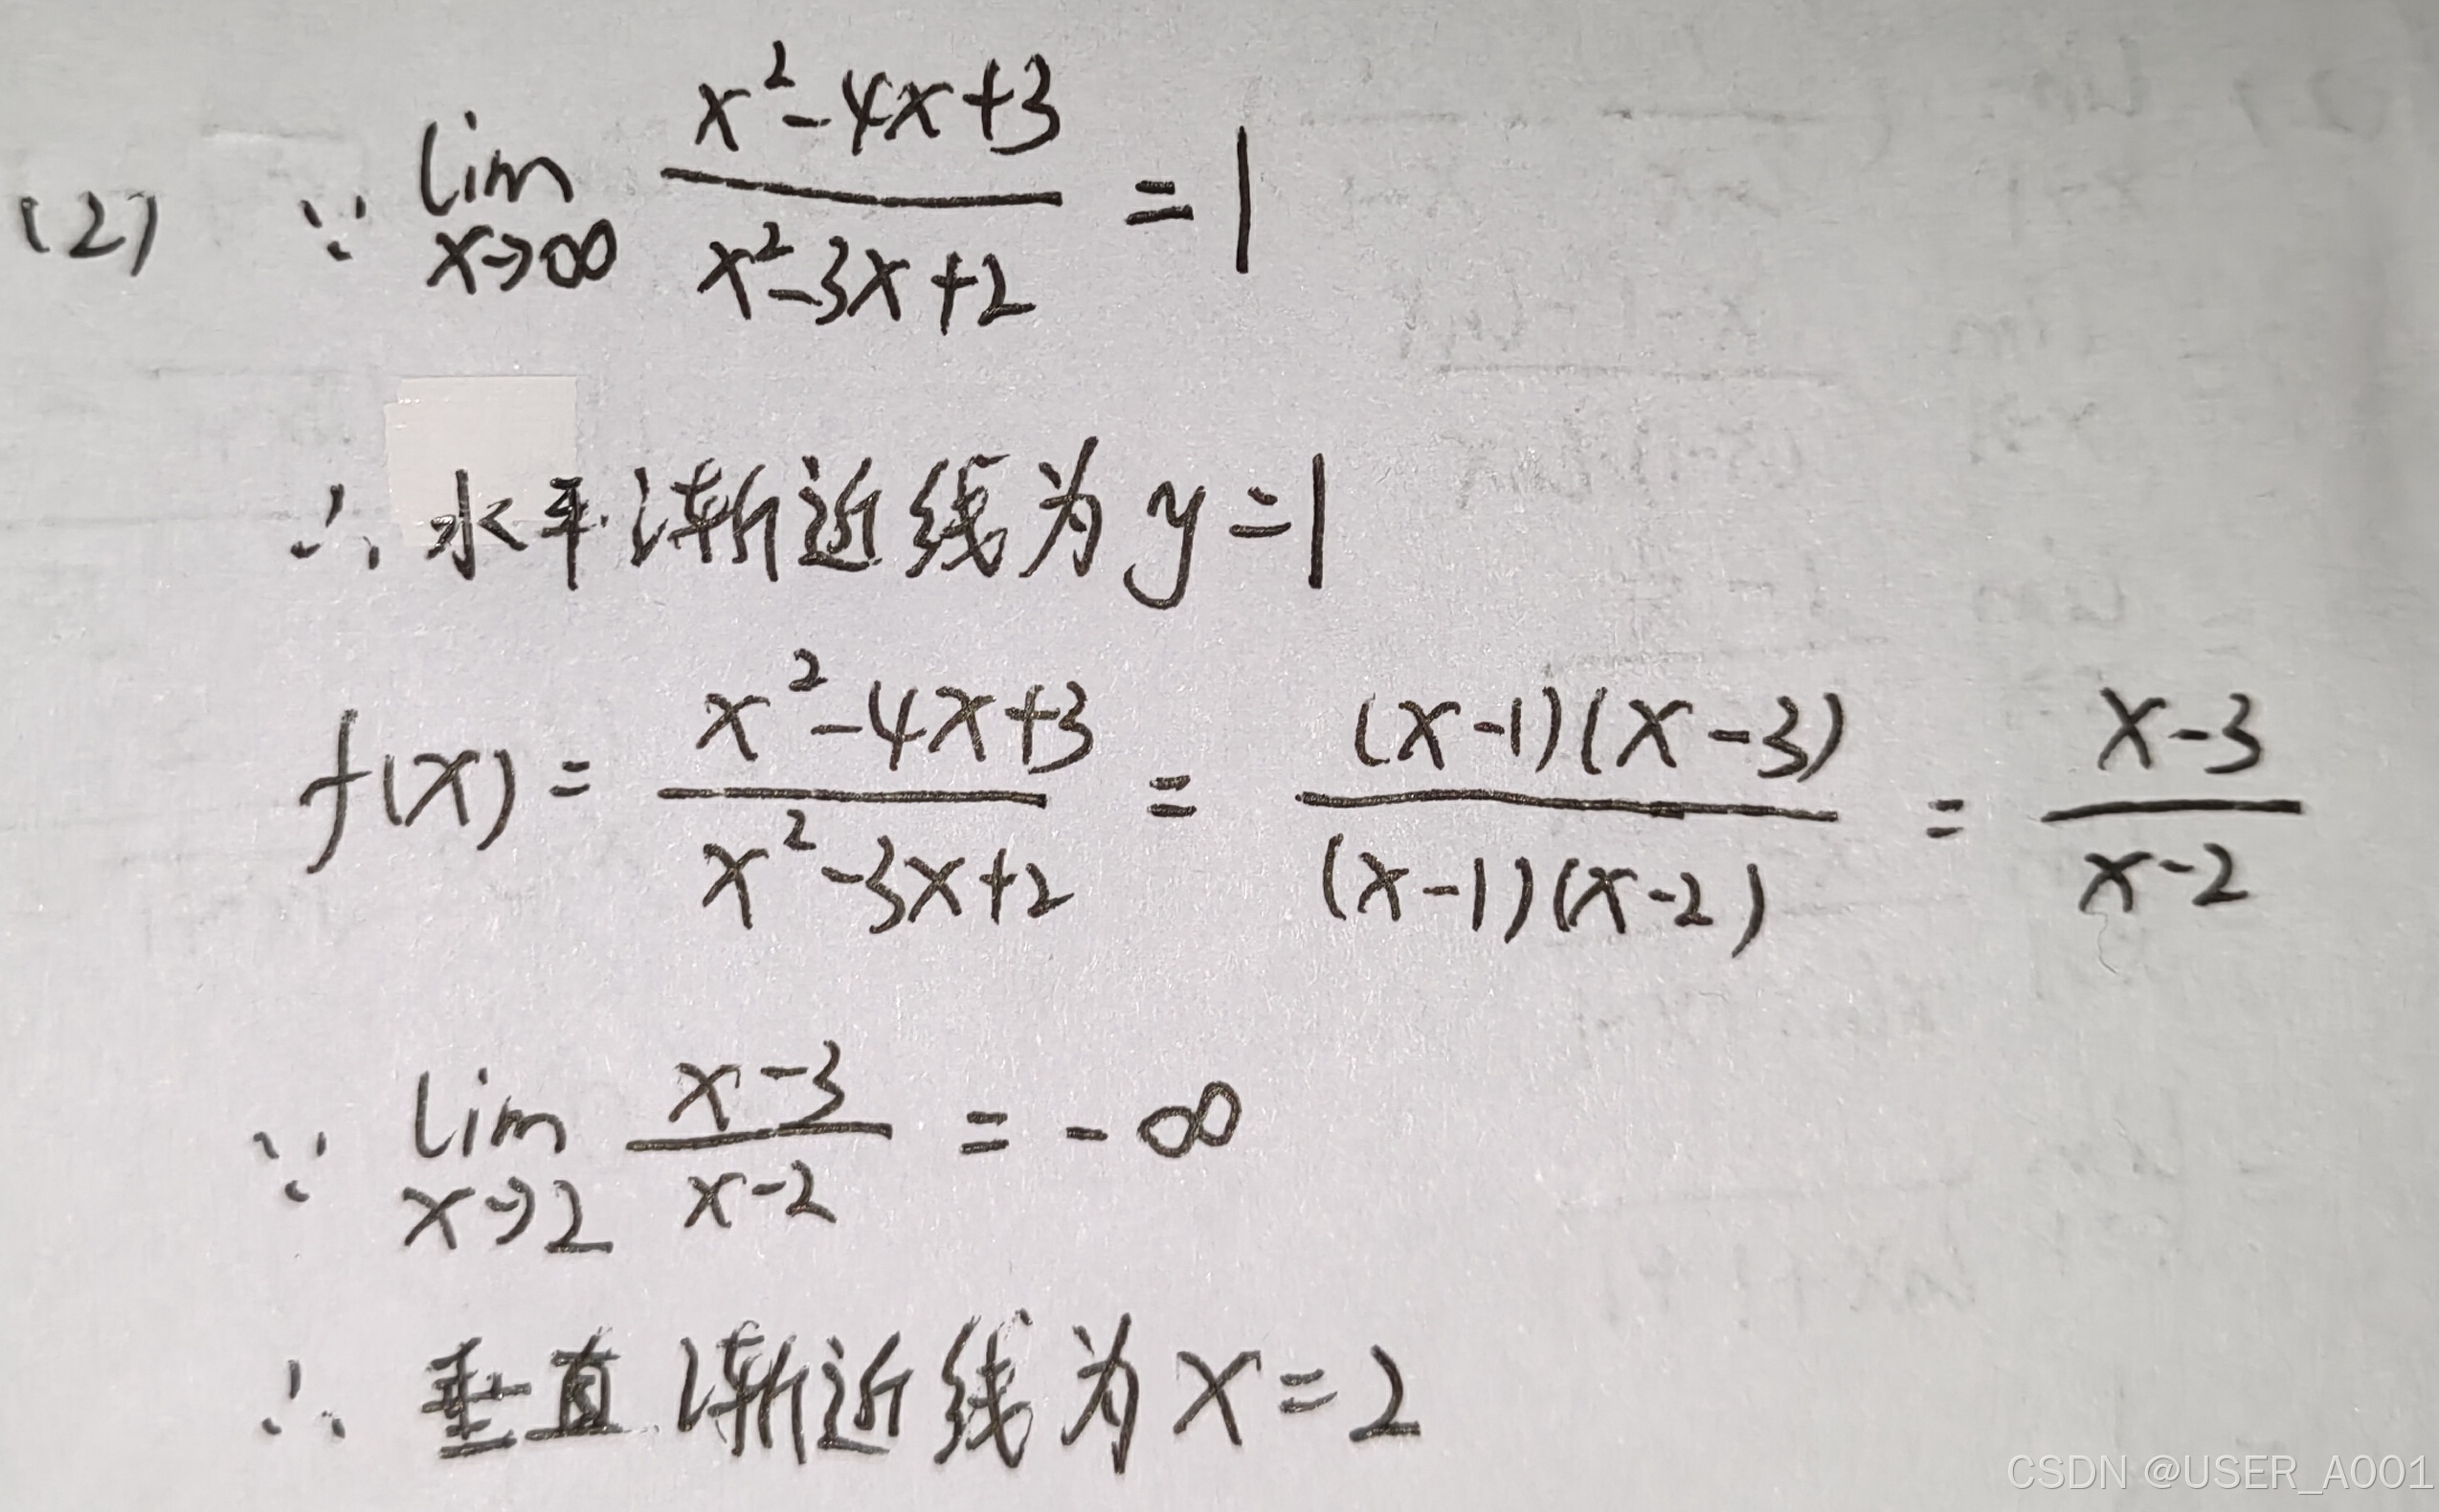 (2) ∵ lim x→∞ (x²-4x+3)/(x²-3x+2) = 1
∴ 水平渐近线为 y=1
f(x) = (x²-4x+3)/(x²-3x+2) = ((x-1)(x-3))/((x-1)(x-2)) = (x-3)/(x-2)
∵ lim x→2 (x-3)/(x-2) = -∞
∴ 垂直渐近线为 x=2
CSDN @USER_A001